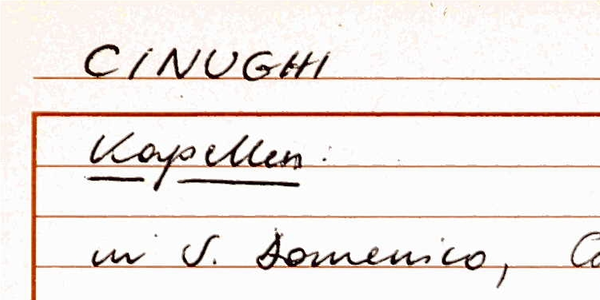 CINUGHI
Kapellen:
in S. Domenico,